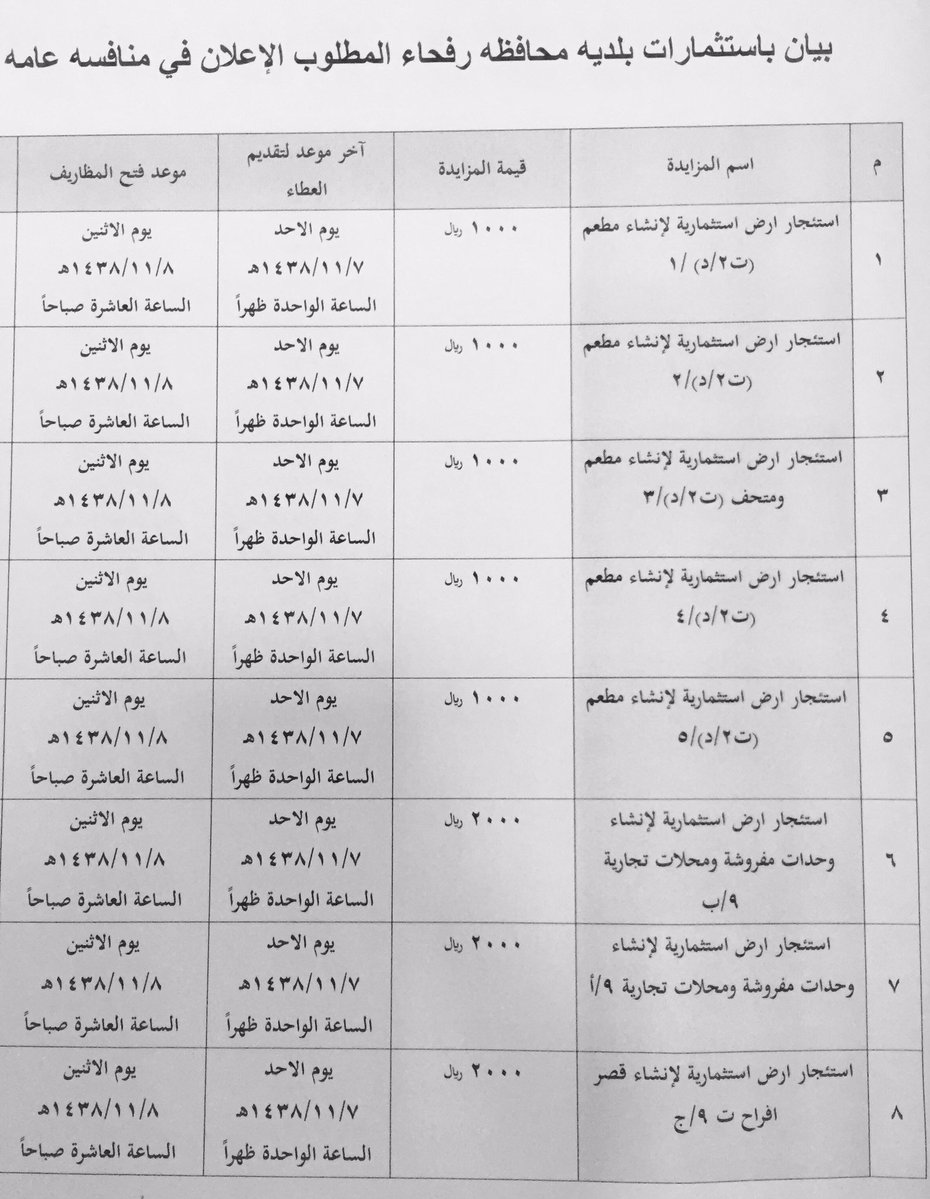 بيان باستثمارات بلديه محافظه رفحاء المطلوب الإعلان في منافسه عامه
م
اسم المزايدة
قيمة المزايدة
آخر موعد لتقديم
العطاء
موعد فتح المظاريف
١
استئجار ارض استثمارية لإنشاء مطعم
(ت٢/د) /١
١٠٠٠ ريال
يوم الاحد
١٤٣٨/١١/٧هـ
الساعة الواحدة ظهراً
يوم الاثنين
١٤٣٨/١١/٨هـ
الساعة العاشرة صباحاً
٢
استئجار ارض استثمارية لإنشاء مطعم
(ت٢/د)/٢
١٠٠٠ ريال
يوم الاحد
١٤٣٨/١١/٧هـ
الساعة الواحدة ظهراً
يوم الاثنين
١٤٣٨/١١/٨هـ
الساعة العاشرة صباحاً
٣
استئجار ارض استثمارية لإنشاء مطعم
ومتحف (ت٢/د)/٣
١٠٠٠ ريال
يوم الاحد
١٤٣٨/١١/٧هـ
الساعة الواحدة ظهراً
يوم الاثنين
١٤٣٨/١١/٨هـ
الساعة العاشرة صباحاً
٤
استئجار ارض استثمارية لإنشاء مطعم
(ت٢/د)/٤
١٠٠٠ ريال
يوم الاحد
١٤٣٨/١١/٧هـ
الساعة الواحدة ظهراً
يوم الاثنين
١٤٣٨/١١/٨هـ
الساعة العاشرة صباحاً
٥
استئجار ارض استثمارية لإنشاء مطعم
(ت٢/د)/٥
١٠٠٠ ريال
يوم الاحد
١٤٣٨/١١/٧هـ
الساعة الواحدة ظهراً
يوم الاثنين
١٤٣٨/١١/٨هـ
الساعة العاشرة صباحاً
٦
استئجار ارض استثمارية لإنشاء
وحدات مفروشة ومحلات تجارية
٩/ب
٢٠٠٠ ريال
يوم الاحد
١٤٣٨/١١/٧هـ
الساعة الواحدة ظهراً
يوم الاثنين
١٤٣٨/١١/٨هـ
الساعة العاشرة صباحاً
٧
استئجار ارض استثمارية لإنشاء
وحدات مفروشة ومحلات تجارية ٩/أ
٢٠٠٠ ريال
يوم الاحد
١٤٣٨/١١/٧هـ
الساعة الواحدة ظهراً
يوم الاثنين
١٤٣٨/١١/٨هـ
الساعة العاشرة صباحاً
٨
استئجار ارض استثمارية لإنشاء قصر
افراح ت ٩/ج
٢٠٠٠ ريال
يوم الاحد
١٤٣٨/١١/٧هـ
الساعة الواحدة ظهراً
يوم الاثنين
١٤٣٨/١١/٨هـ
الساعة العاشرة صباحاً